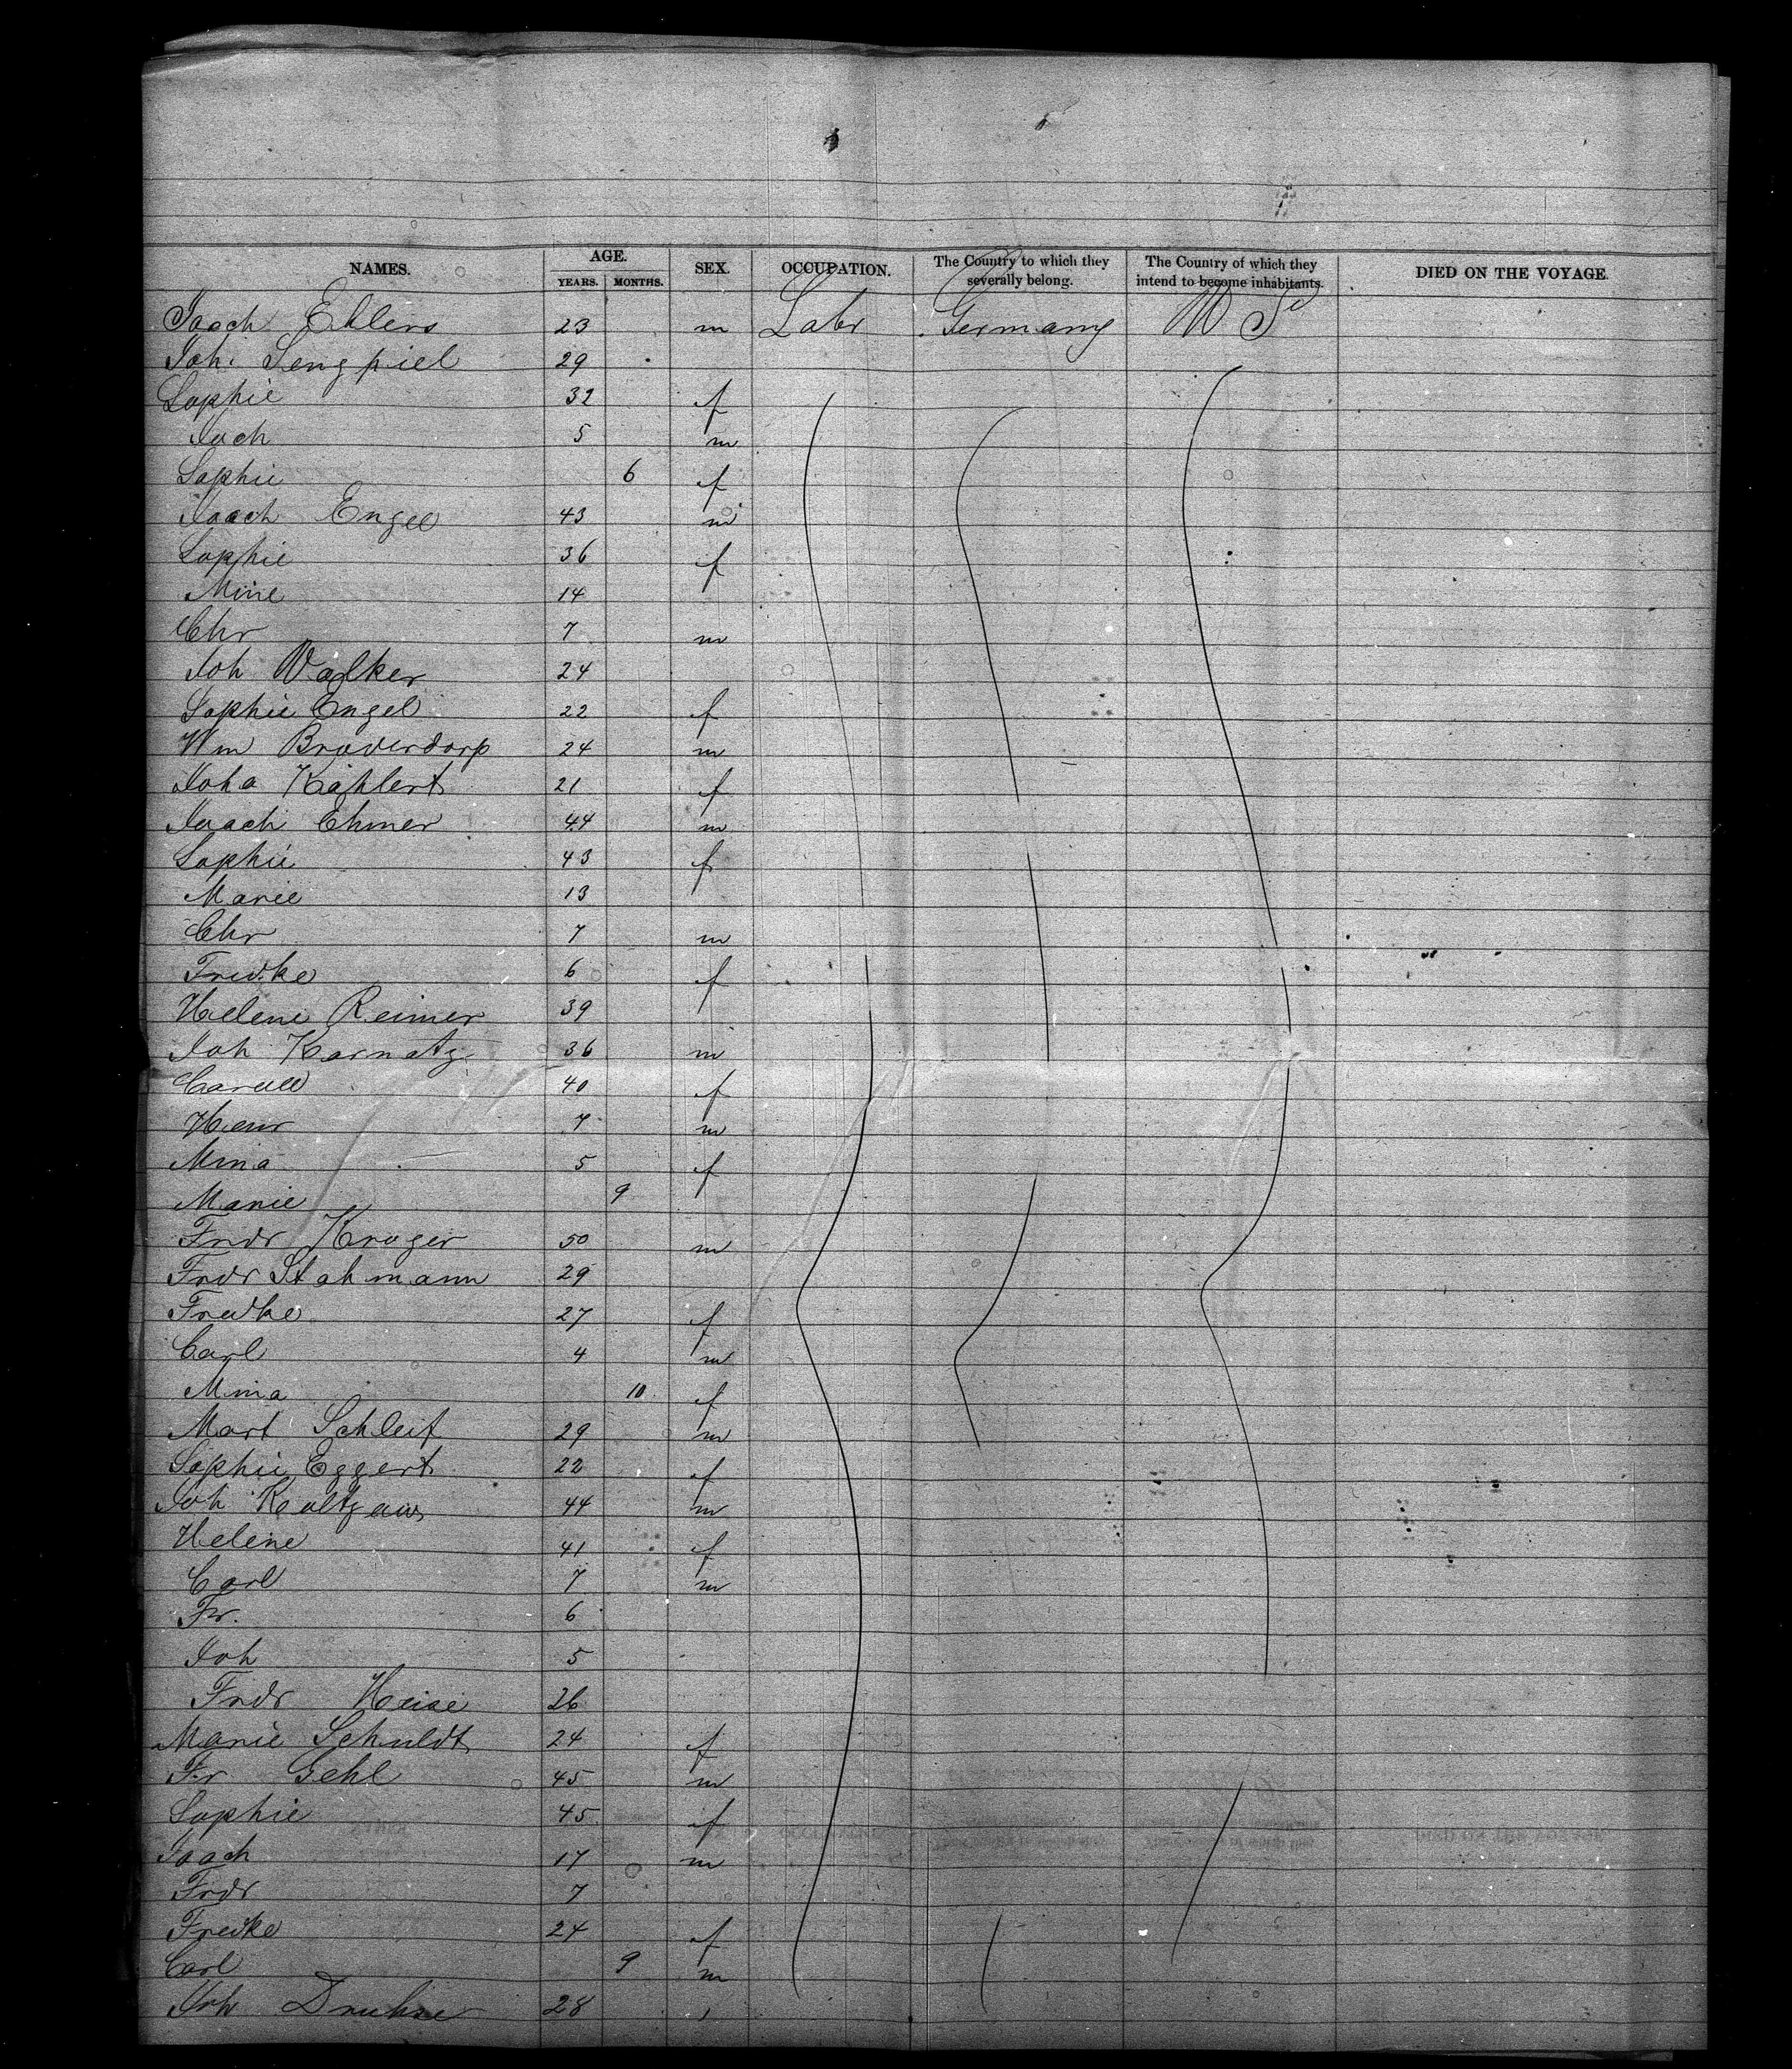 NAMES. AGE. SEX. OCCUPATION. The Country to which they severally belong. The Country of which they intend to become inhabitants. DIED ON THE VOYAGE.
YEARS. MONTHS.
Joach Ehlers 23 m Labr Germany U St
Joh. Sengpiel 29
Sophie 32 f
Joch 5 m
Sophie 6 f
Joach Engel 43 m
Sophie 36 f
Mine 14
Chr 7 m
Joh 24
Sophie Engel 22 f
Wm Broderdorp 24 m
Joha Kahlert 21 f
Joach Ehmer 44 m
Sophie 43 f
Marie 13
Chr 7 m
Fredke 6 f
Helene Reimer 39
Joh Karnatz 36 m
40 f
Heinr 7 m
Mina 5 f
Marie 9
Fredr Kroger 50 m
Fredr Stahmann 29
Fredke 27 f
Carl 4 m
Mina 10 f
Mart Schleif 29 m
Sophie Eggert 22 f
Joh 44 m
Helene 41 f
Carl 7 m
Fr. 6
Joh 5
Fredr Heise 26
Marie Schuldt 24 f
Fr Gehl 45 m
Sophie 45 f
Joach 17 m
Fredr 7
Fredke 24 f
Carl 9 m
Joh 28